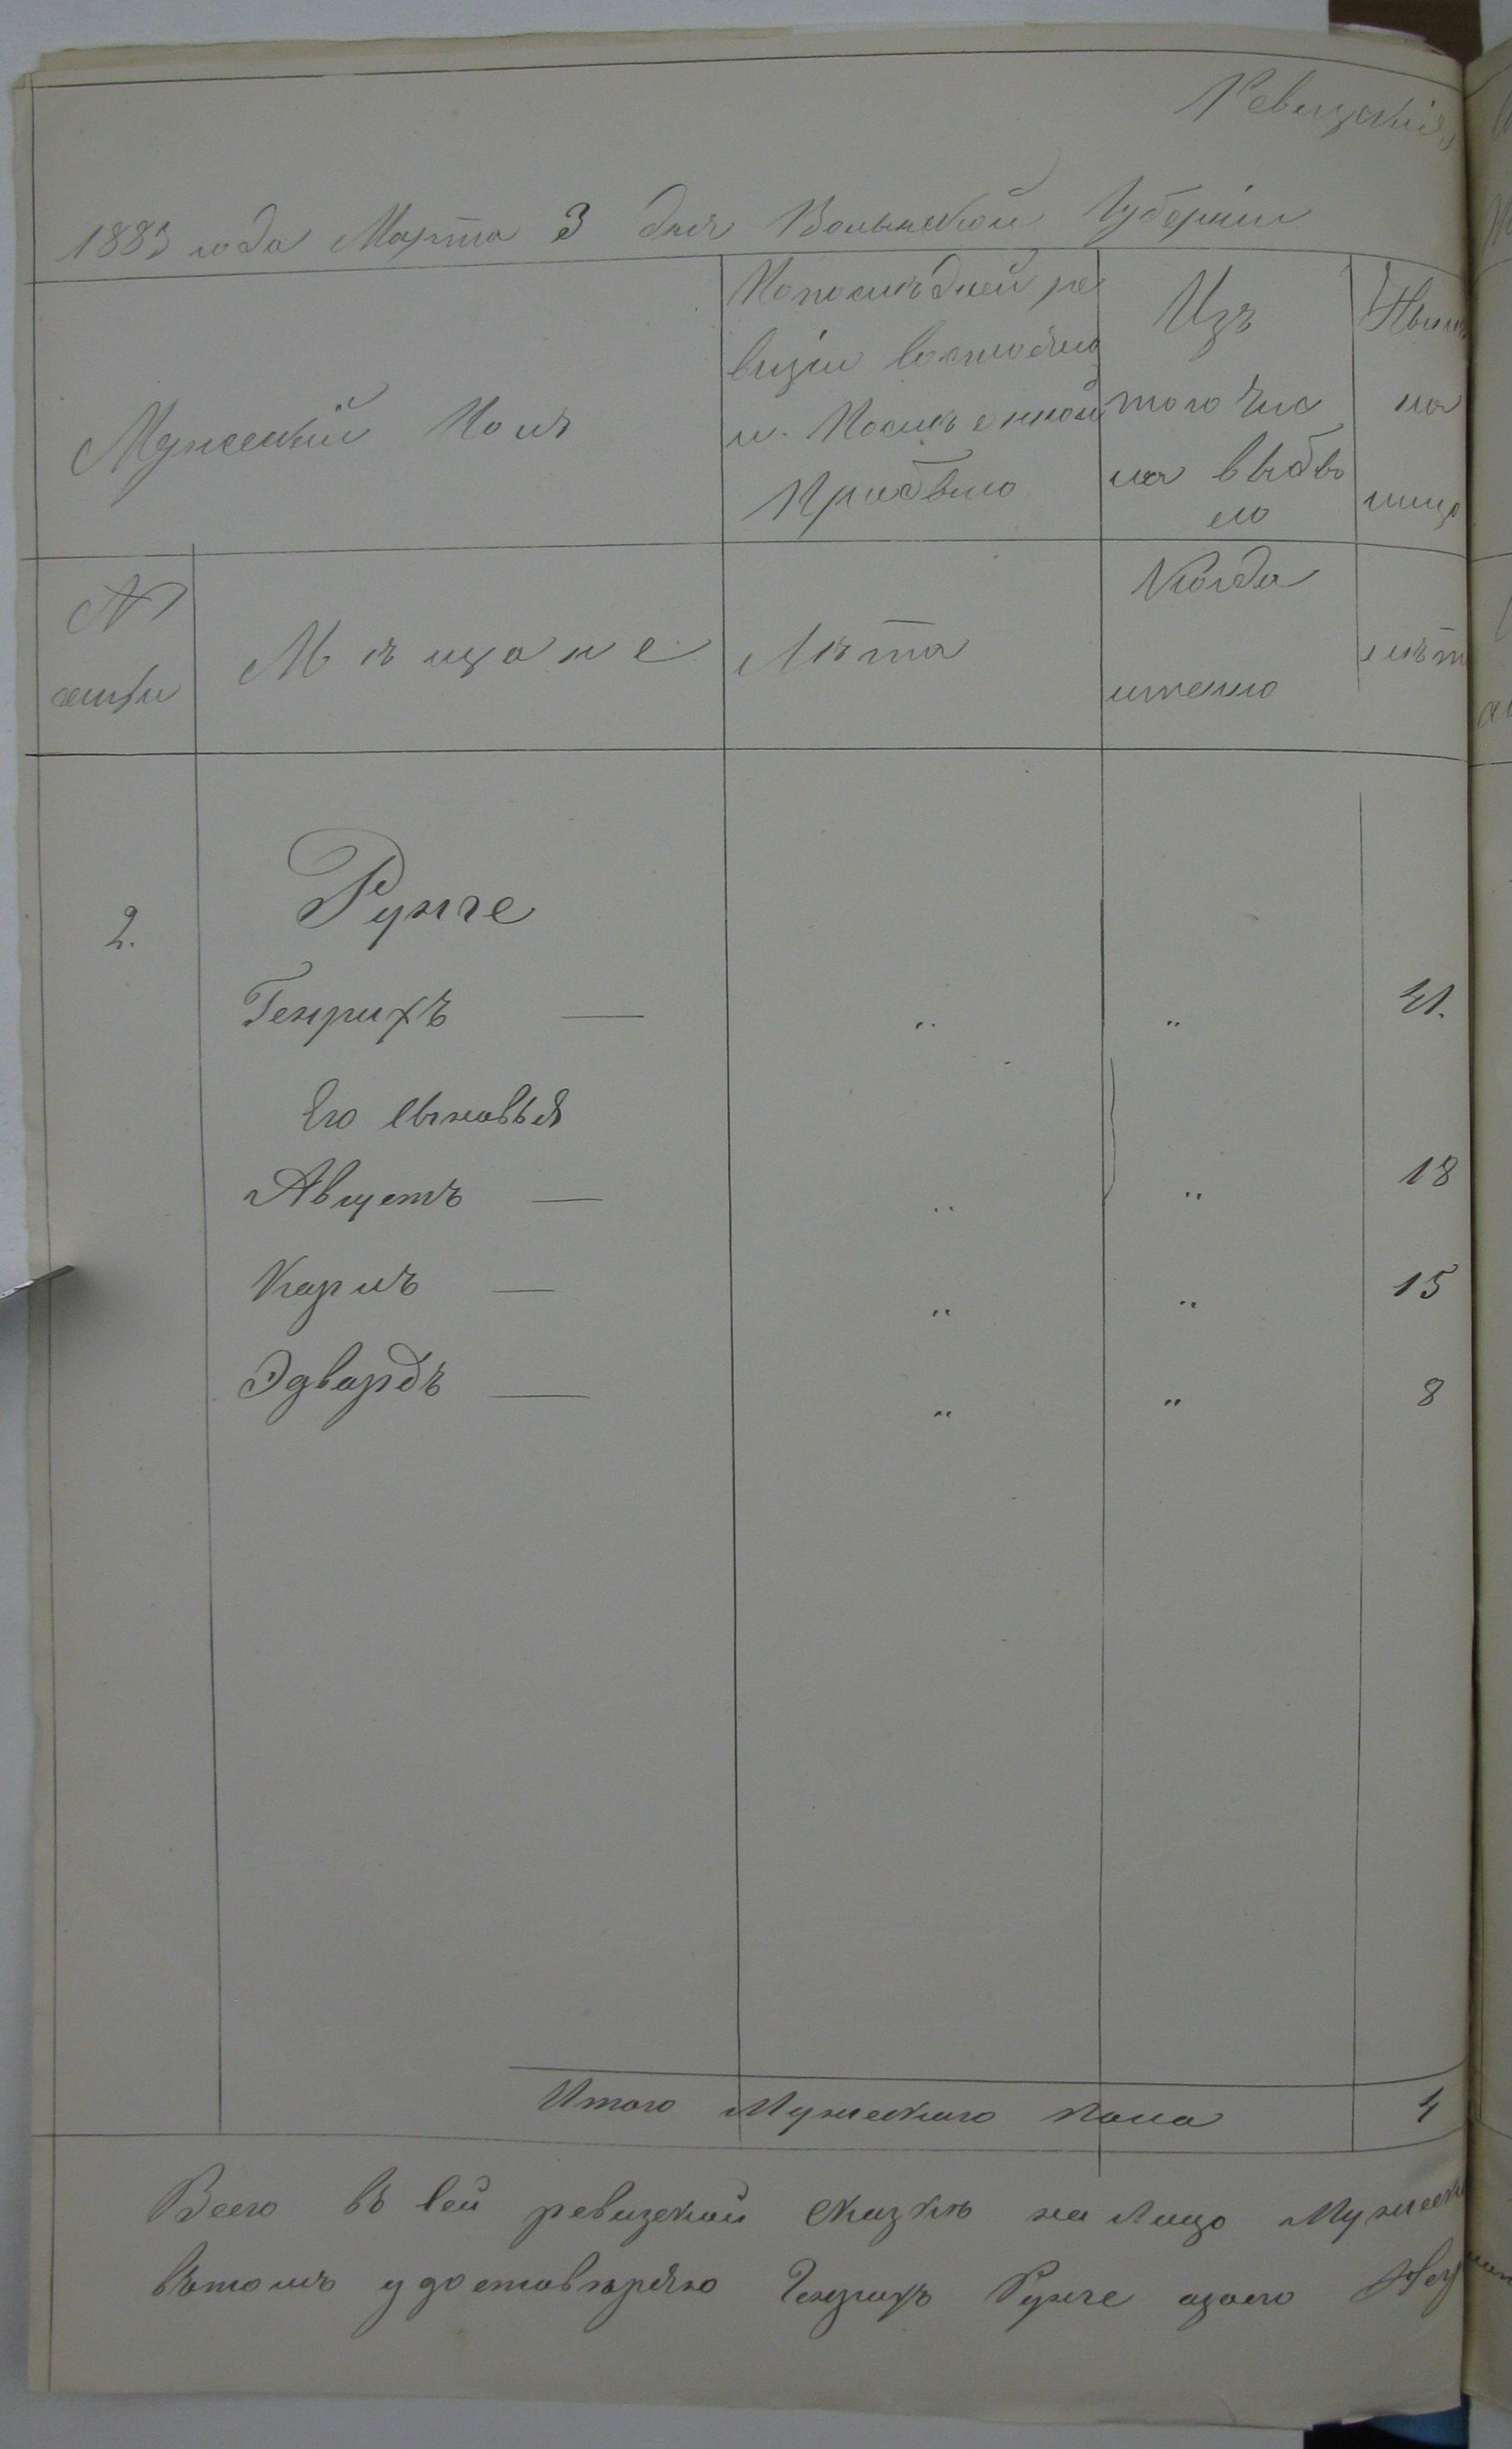 Ревизская
1883 года Марта 3 дня Волынской Губернiи
Мужескiй Полъ
Попослѣдней ре
визiи состояло
и. Послѣ оной
Прибыло
Изъ
того чис
ла выбы
ло
Нынѣ
на
лицо
№
семьи
Мѣщане
Лѣта
Когда
именно
лѣт
2.
Рунге
Генрихъ — „ „ 41.
Его сыновья
Августъ — „ „ 18
Карлъ — „ „ 15
Эдвардъ — „ „ 8
Итого Мужескаго пола 4
Всего въ сей ревизской сказкѣ на лицо Мужеск
вътомъ удостовѣряю Генрихъ Рунге азаего Нег